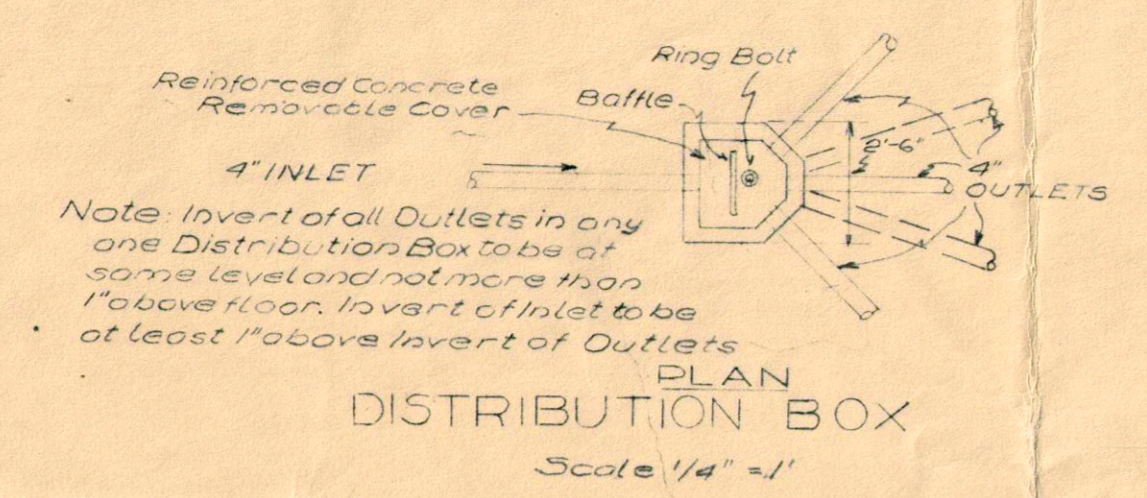 Ring Bolt
Reinforced Concrete
Removable Cover
Baffle
2'-6"
4" INLET
4"
OUTLETS
Note: Invert of all Outlets in any
one Distribution Box to be at
same level and not more than
1" above floor. Invert of Inlet to be
at least 1" above Invert of Outlets
PLAN
DISTRIBUTION BOX
Scale 1/4" = 1'